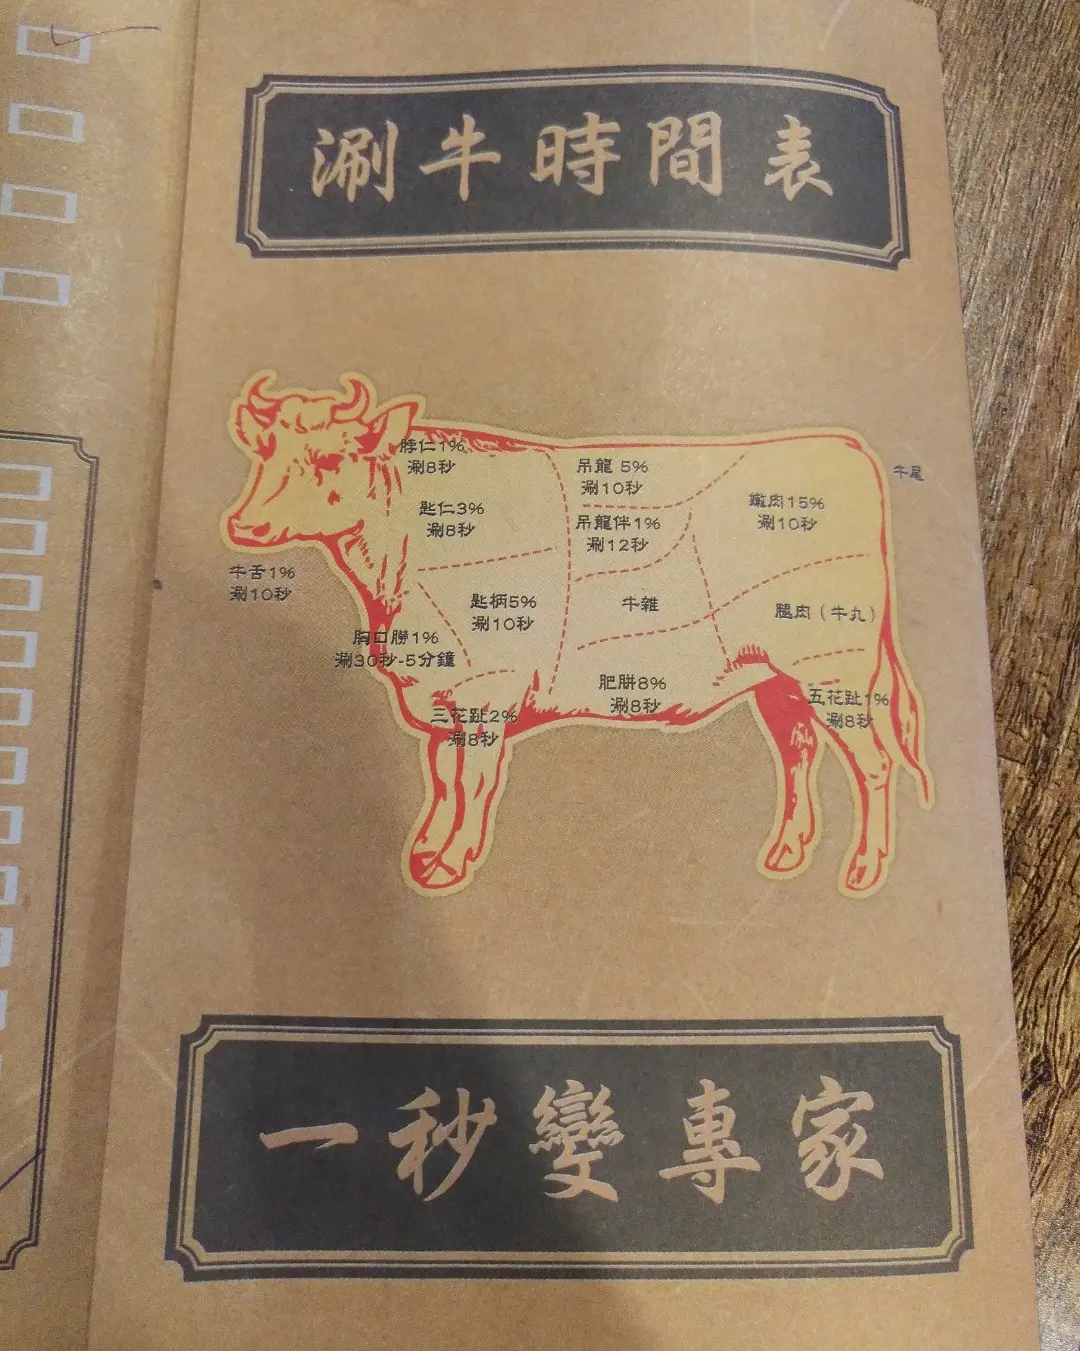 涮牛時間表
脖仁1%
涮8秒
匙仁3%
涮8秒
吊龍 5%
涮10秒
吊龍伴1%
涮12秒
嫩肉15%
涮10秒
牛尾
牛舌1%
涮10秒
匙柄5%
涮10秒
牛雜
腿肉（牛丸）
胸口朥1%
涮30秒-5分鐘
肥胼8%
涮8秒
三花趾2%
涮8秒
五花趾1%
涮8秒
一秒變專家